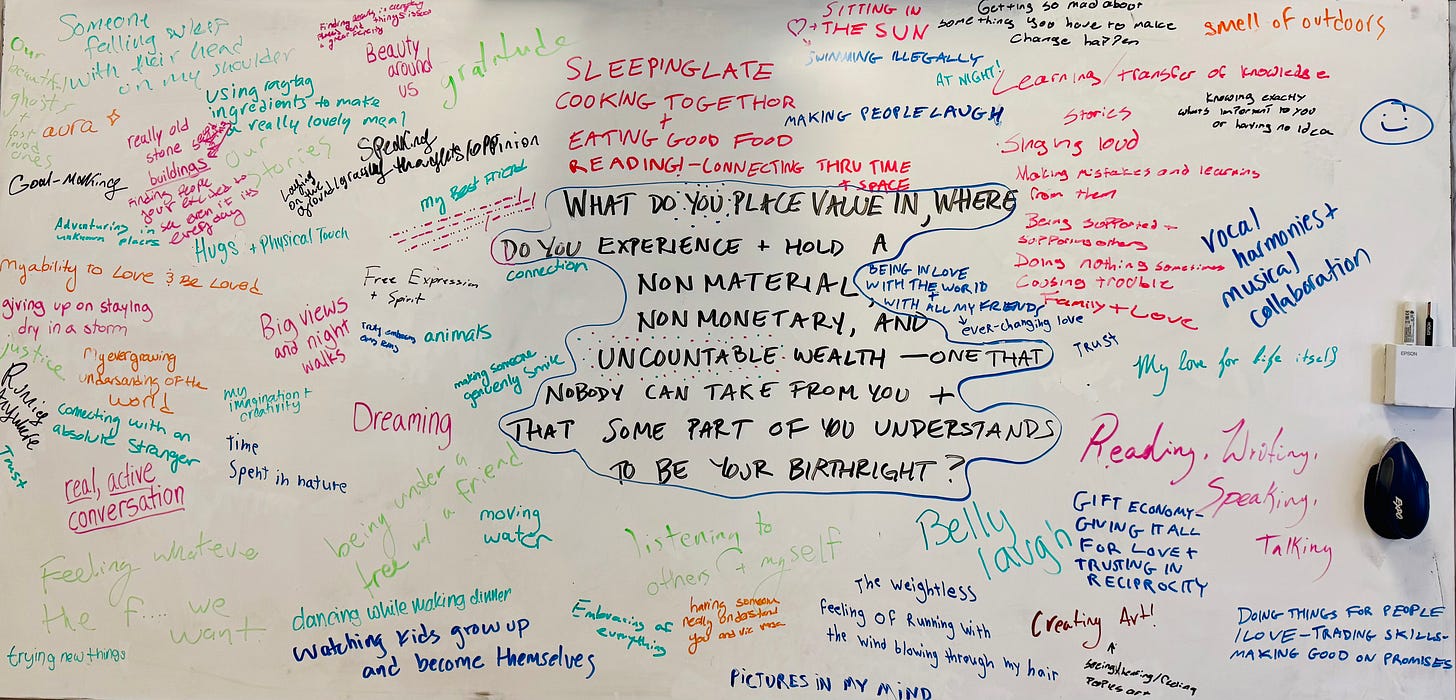 Someone
falling asleep
with their head
on my shoulder
Our
beautiful
ghosts
+
lost
loved
ones
aura
Beauty
around
us
gratitude
using ragtag
ingredients to make
a really lovely meal
really old
stone
buildings
Our
Stories
Speaking
thoughts/opinion
Goal-Making
Finding people
you're excited to
see even if its
everyday
Laying
on the
ground/grass
my Best Friend
Adventuring in
unknown places
Hugs + Physical Touch
SLEEPING LATE
COOKING TOGETHOR
+
EATING GOOD FOOD
READING! - CONNECTING THRU TIME
+ SPACE
SITTING IN
+ THE SUN
SWIMMING ILLEGALLY
AT NIGHT!
MAKING PEOPLE LAUGH
Getting so mad about
something you have to make
change happen
smell of outdoors
Learning / transfer of knowledge
Stories
Knowing exactly
what's important to you
or having no idea
Singing loud
Making mistakes and learning
from them
Being supported +
supporting others
Doing nothing sometimes
Causing trouble
Family + Love
vocal
harmonies +
musical
collaboration
WHAT DO YOU PLACE VALUE IN, WHERE
DO YOU EXPERIENCE + HOLD A
NON MATERIAL,
NON MONETARY, AND
UNCOUNTABLE WEALTH — ONE THAT
NOBODY CAN TAKE FROM YOU +
THAT SOME PART OF YOU UNDERSTANDS
TO BE YOUR BIRTHRIGHT?
connection
BEING IN LOVE
WITH THE WORLD
+
WITH ALL MY FRIENDS
ever-changing love
TRUST
My love for life itself
EPSON
My ability to Love & Be Loved
giving up on staying
dry in a storm
Free Expression
+ Spirit
Big views
and night
walks
animals
making someone
genuinely smile
justice
My evergrowing
understanding of the
world
Running
Anywhere
Trust
connecting with an
absolute stranger
my
imagination +
creativity
Time
Spent in nature
Dreaming
real, active
conversation
being under a
tree w/ a friend
moving
water
Feeling whatever
the f... we
want
trying new things
dancing while making dinner
watching kids grow up
and become themselves
listening to
others + myself
Embracing of
everything
having someone
really understand
you and vic versa
The weightless
feeling of running with
the wind blowing through my hair
PICTURES IN MY MIND
Belly
laugh
Reading, Writing,
Speaking,
Talking
GIFT ECONOMY-
GIVING IT ALL
FOR LOVE +
TRUSTING IN
RECIPROCITY
Creating Art!
seeing/hearing/feeling
DOING THINGS FOR PEOPLE
I LOVE - TRADING SKILLS-
MAKING GOOD ON PROMISES